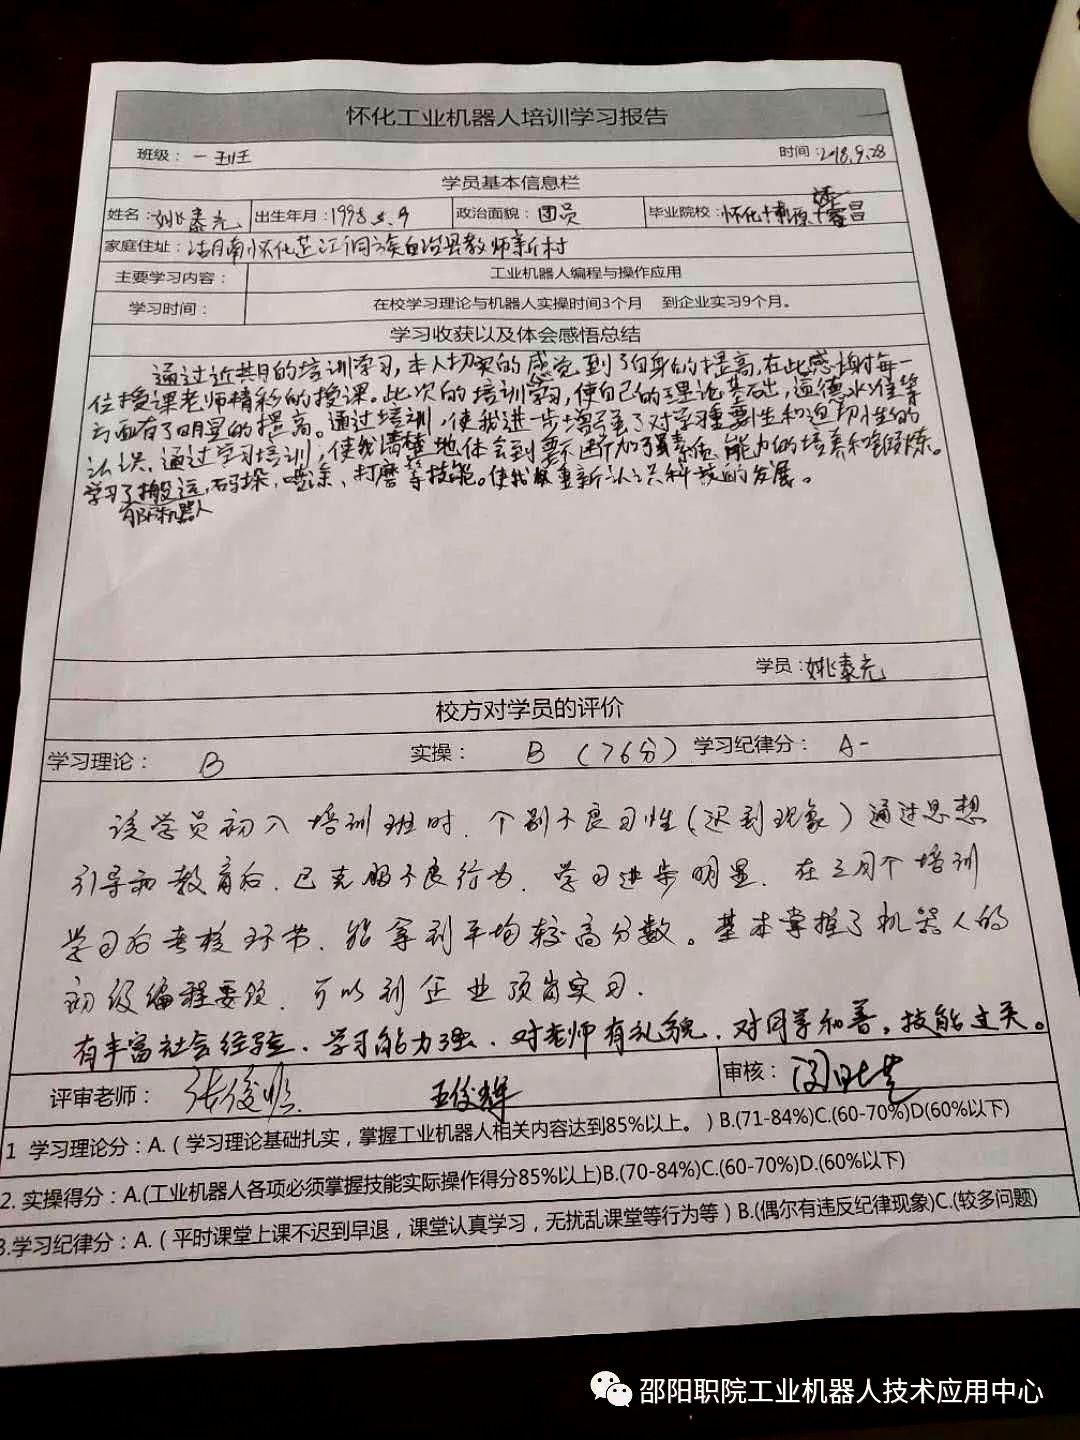 怀化工业机器人培训学习报告
班级：一 时间：2018.9.28
学员基本信息栏
姓名：姚泰 出生年月：1998 政治面貌：团员 毕业院校：怀化
家庭住址：湖南怀化芷江侗族自治县教师新村
主要学习内容： 工业机器人编程与操作应用
学习时间： 在校学习理论与机器人实操时间3个月 到企业实习9个月。
学习收获以及体会感悟总结
通过近 的培训学习，本人切实的感觉到了自身的提高，在此感谢每一
位授课老师精彩的授课。此次的培训学习，使自己的理论基础，道德水准等
方面有了明显的提高。通过培训，使我进一步增强了对学习重要性和迫切性的
认识，通过学习培训，使我清楚地体会到要不断加强素质、能力的培养和锻炼。
学习了搬运，码垛，喷涂、打磨等技能。使我 重新认识科技的发展。
机器人
学员：姚泰
校方对学员的评价
学习理论： B 实操： B（76分） 学习纪律分： A-
该学员初入培训班时，个别不良习性（迟到现象）通过思想
引导和教育后，已克服不良行为，学习进步明显，在三月个培训
学习后考核环节，能拿到平均较高分数。基本掌握了机器人的
初级编程要领，可以到企业顶岗实习.
有丰富社会经验、学习能力强、对老师有礼貌，对同学和善。技能过关。
评审老师： 张俊 王俊辉 审核：
1 学习理论分：A.（学习理论基础扎实，掌握工业机器人相关内容达到85%以上。）B.(71-84%)C.(60-70%)D(60%以下)
2. 实操得分：A.(工业机器人各项必须掌握技能实际操作得分85%以上)B.(70-84%)C.(60-70%)D.(60%以下)
3.学习纪律分：A.（平时课堂上课不迟到早退，课堂认真学习，无扰乱课堂等行为等）B.(偶尔有违反纪律现象)C.(较多问题)
邵阳职院工业机器人技术应用中心